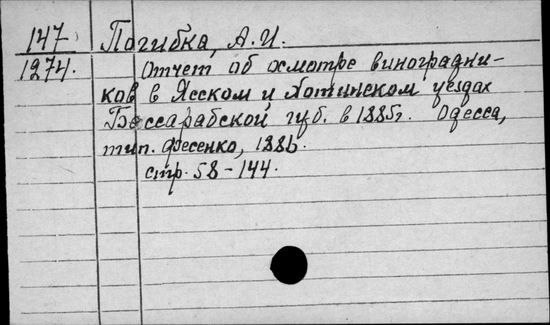 147
1274.
Погибка, А. И.
Отчет об осмотре виноградни-
ков в Ясском и Хотинском уездах
Бессарабской губ. в 1885г. Одесса,
тип. Фесенко, 1886.
стр. 58-144.